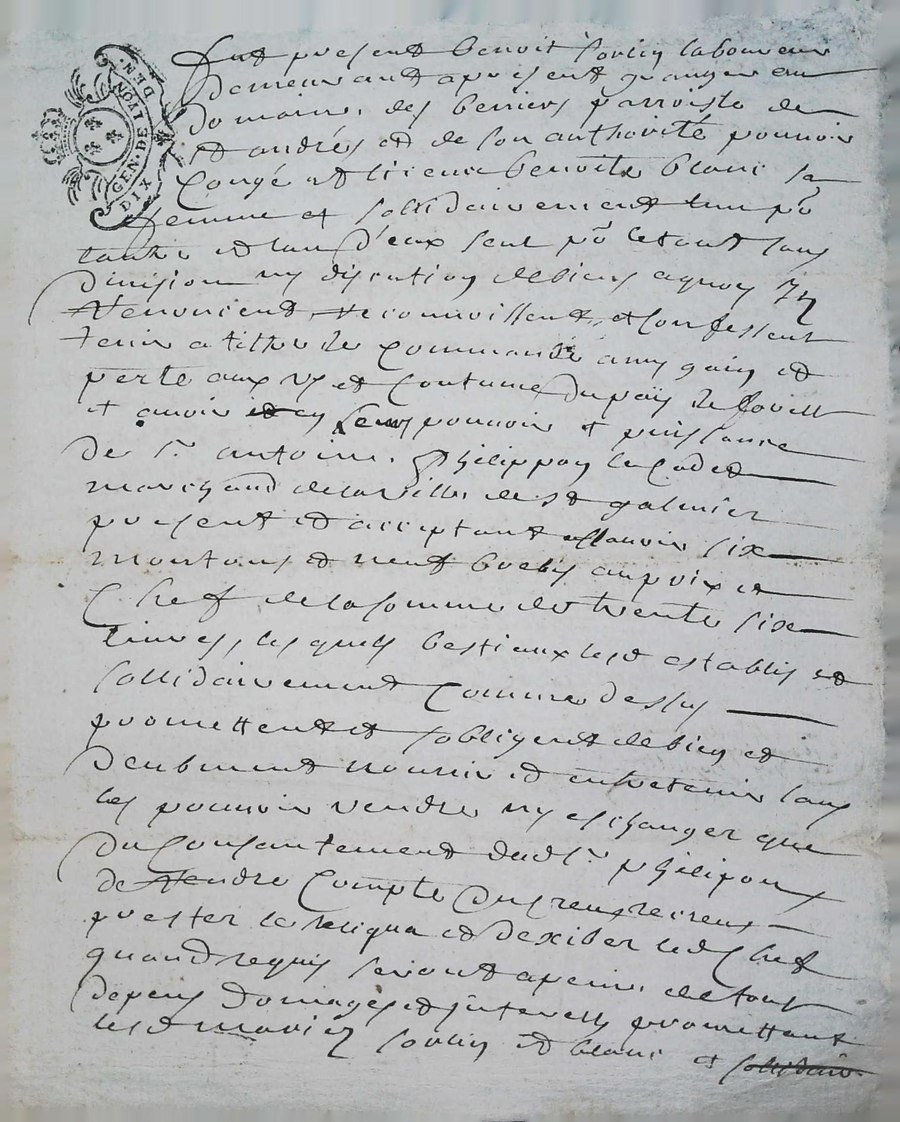 GEN. DE LYON
DIX DEN.
Fut present benoit Sovley laboureur
demeurant apresent granger au
domaine des perriers parroisse de
St andrés et de son authorité pouvoir
Congé et licence benoite blanc sa
femme et sollidairement lun po
lautre et lun d'eux seul po le tout sans
division ny discution de biens a quoy
Renoncent, Reconnoissent, et Confessent
tenir a tiltre de Commande a my gain et
perte aux us et Coutume du païs de
et avoir en leurs pouvoir et puissance
de Sr antoine Philippon le Cadet
marchand de la ville de St galmier
present et acceptant scavoir six
moutons et neuf brebis au prix et
Chef de la somme de trente six
livres, lesquels bestiaux lesd establis et
sollidairement Comme dessus
promettent et sobligent de bien et
deubment nourrir et entretenir sans
les pouvoir vendre ny eschanger que
du Consantement dud Sr philipon
de Rendre Compte du
prester le reliqua et dexiber led Chef
quand requis seront apeine de tous
depens domages et jnterests promettant
lesd mariez Sovley et blanc et sollidair